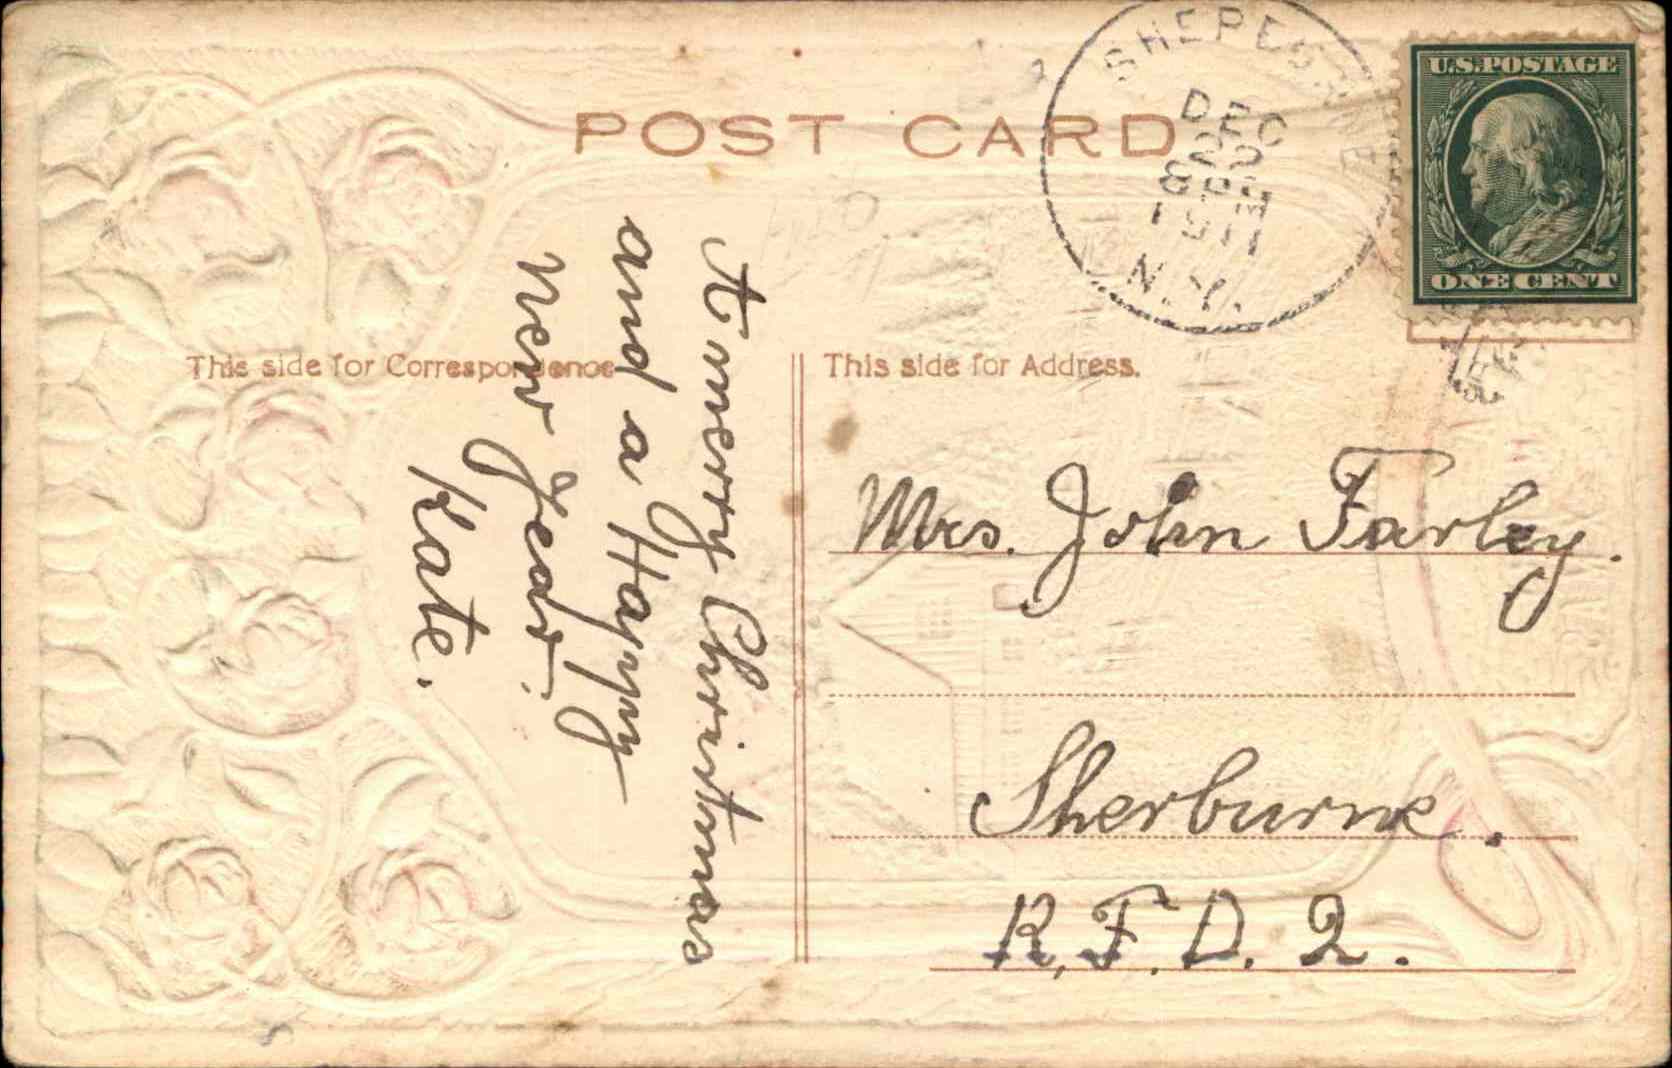 POST CARD
SHERBURNE
DEC
22
8 PM
1911
N.Y.
U.S.POSTAGE
ONE CENT
This side for Correspondence
This side for Address.
A merry Christmas
and a Happy
New Year.
Kate.
Mrs. John Farley.
Sherburne.
R.F.D. 2.